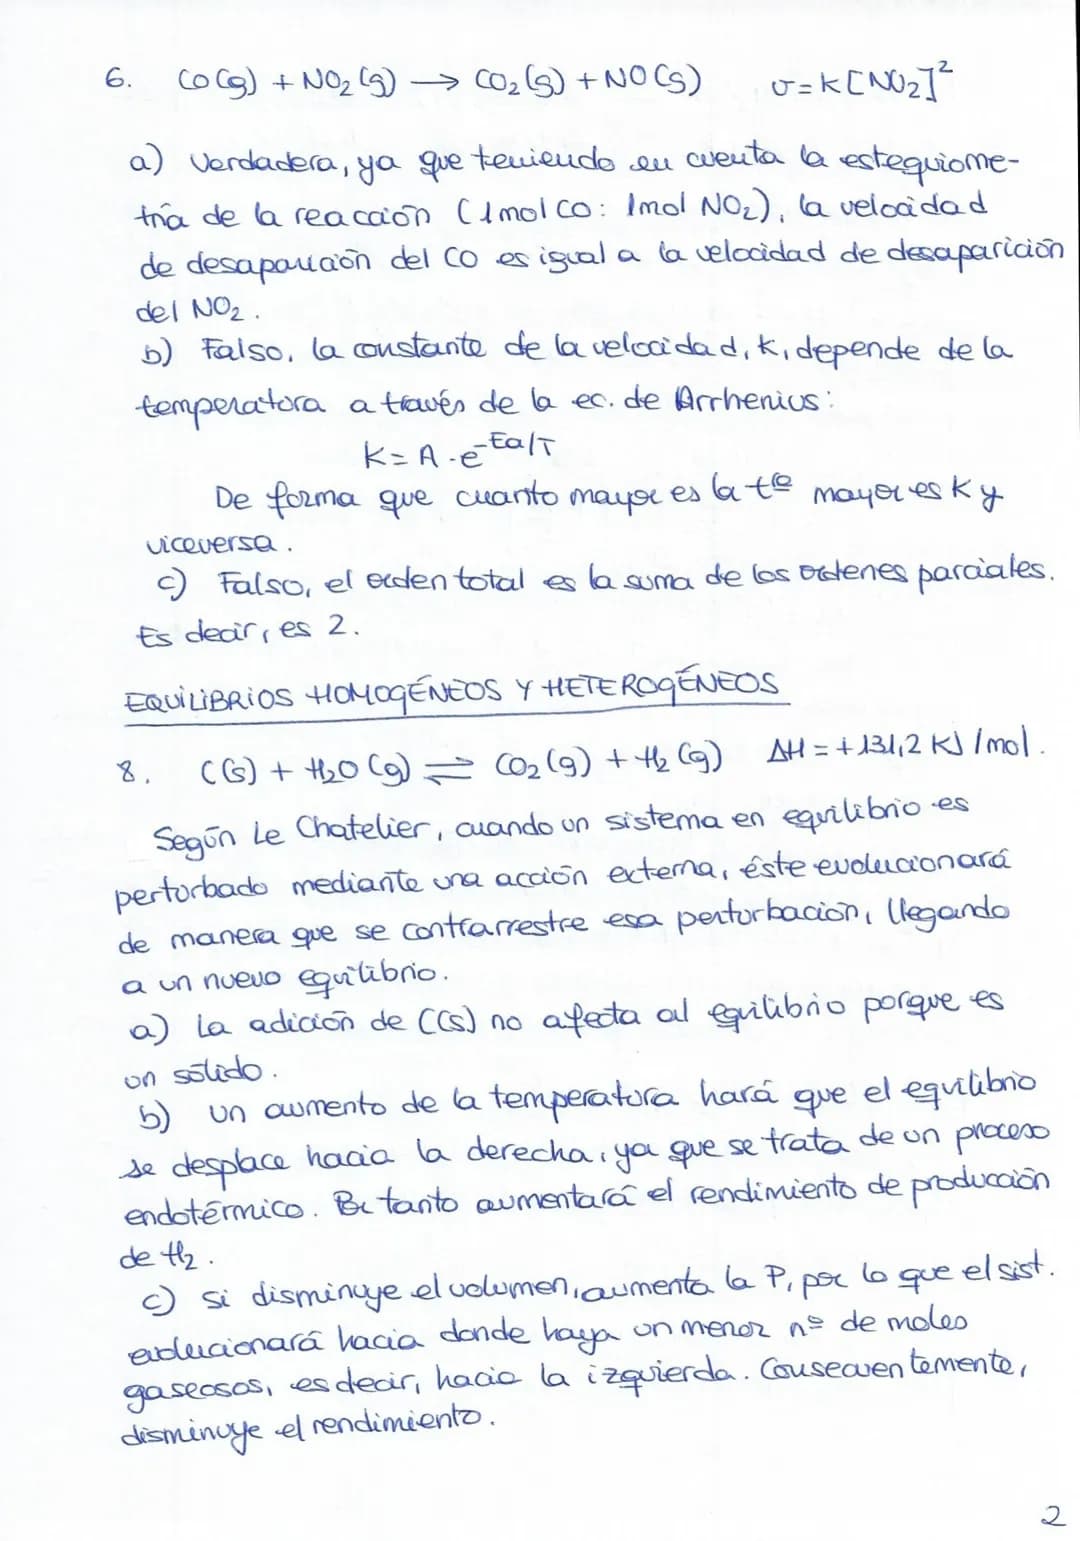 6. CO(g) + NO₂(g) → CO₂(g) + NO(g) v=K[NO₂]²
a) Verdadera, ya que teniendo en cuenta la estequiome-
tría de la reacción (1mol CO: 1mol NO₂), la velocidad
de desaparición del CO es igual a la velocidad de desaparición
del NO₂.
b) Falso, la constante de la velocidad, K, depende de la
temperatura a través de la ec. de Arrhenius:
K = A·e^-Ea/T
De forma que cuanto mayor es la tª mayor es K y
viceversa.
c) Falso, el orden total es la suma de los ordenes parciales.
Es decir, es 2.
EQUILIBRIOS HOMOGÉNEOS Y HETEROGÉNEOS
8. C(s) + H₂O(g) ⇌ CO₂(g) + H₂(g) ΔH = +131,2 KJ/mol.
Según Le Chatelier, cuando un sistema en equilibrio es
perturbado mediante una acción externa, éste evolucionará
de manera que se contrarrestre esa perturbación, llegando
a un nuevo equilibrio.
a) La adición de C(s) no afecta al equilibrio porque es
un sólido.
b) Un aumento de la temperatura hará que el equilibrio
se desplace hacia la derecha, ya que se trata de un proceso
endotérmico. Por tanto aumentará el rendimiento de producción
de H₂.
c) Si disminuye el volumen, aumenta la P, por lo que el sist.
evolucionará hacia donde haya un menor nº de moles
gaseosos, es decir, hacia la izquierda. Consecuentemente,
disminuye el rendimiento.
2